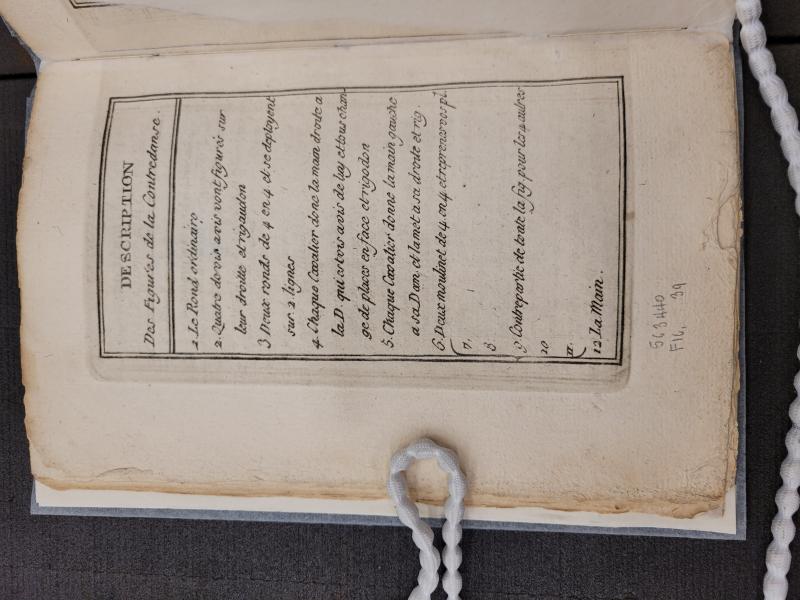 DESCRIPTION
Des Figures de la Contredanse.
1 Le Rond ordinaire
2. Quatre de vis avis vont figurés sur
leur droitte et rigaudon
3 Deux ronds de 4 en 4 et se deployent
sur 2 lignes
4 Chaque Cavalier done la main droite a
la D. qui est vis avis de luy et tous chan-
ge de places en face et rigodon
5. Chaque Cavalier donne la main gauche
a sa Dam et la met a sa droite et rig.
6. Deux moulinet de 4 en 4 et reprenes vos pl.
7.
8
9 Contrepartie de toute la fig pour les 4 autres
10
11.
12 La Main.
563440
FIG. 39